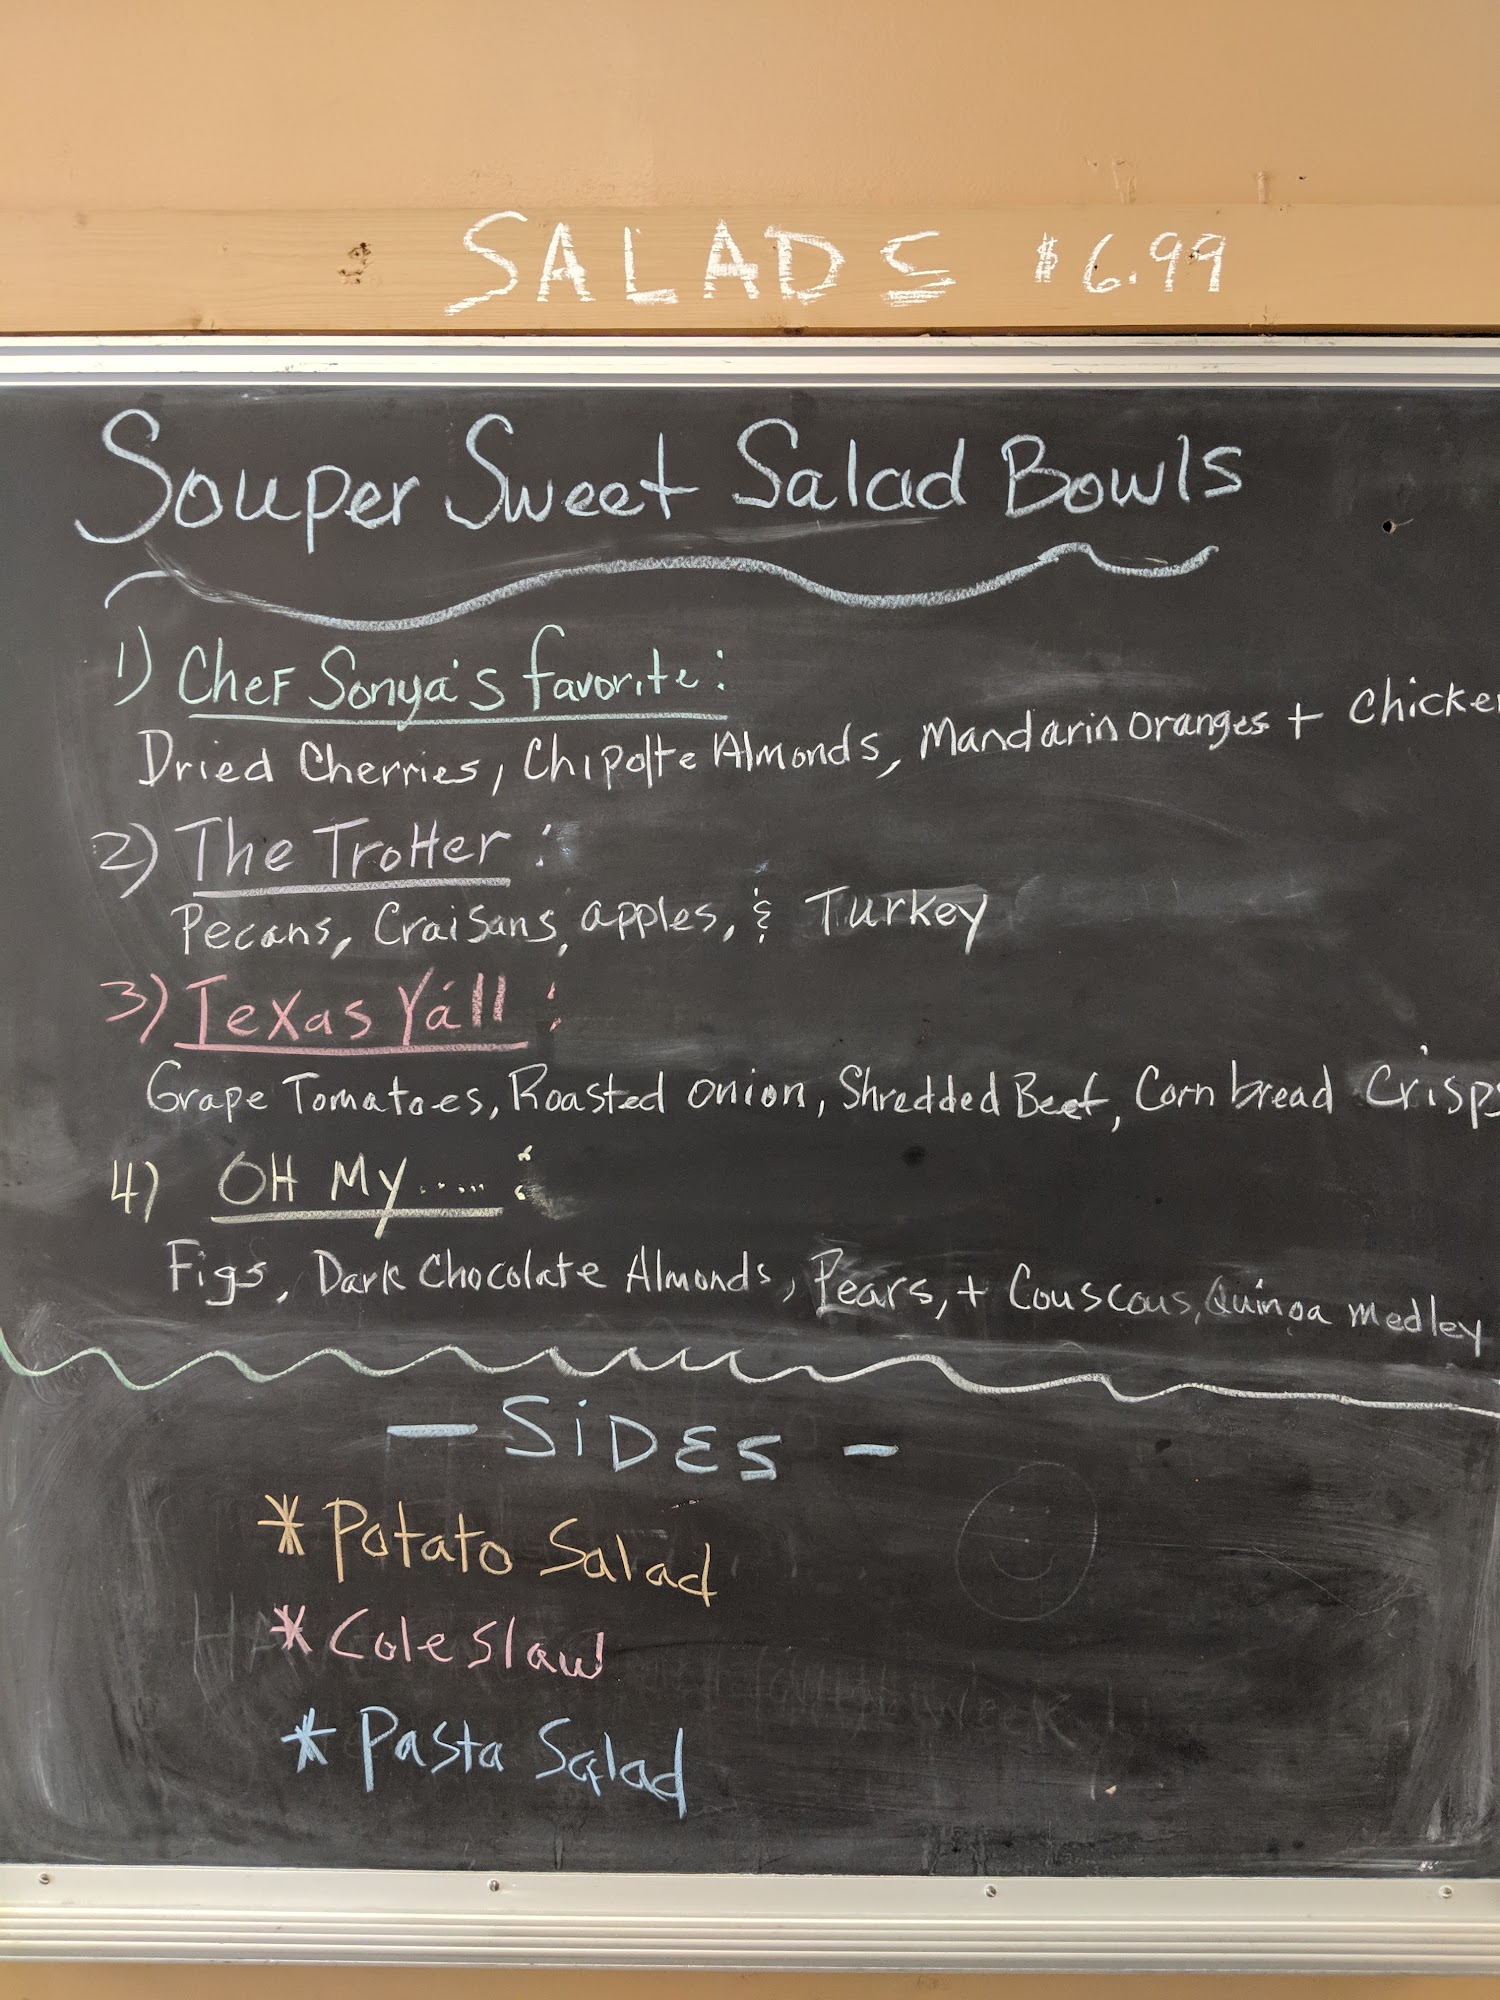 SALADS $6.99
Souper Sweet Salad Bowls
1) Chef Sonya's favorite:
Dried Cherries, Chipolte Almonds, Mandarin oranges + Chicken
2) The Trotter:
Pecans, Craisans, apples, & Turkey
3) Texas Ya'll:
Grape Tomatoes, Roasted onion, Shredded Beef, Corn bread Crisps
4) OH MY.....:
Figs, Dark Chocolate Almonds, Pears, + Couscous, Quinoa medley
- SiDES -
* Potato Salad
* Coleslaw
* Pasta Salad